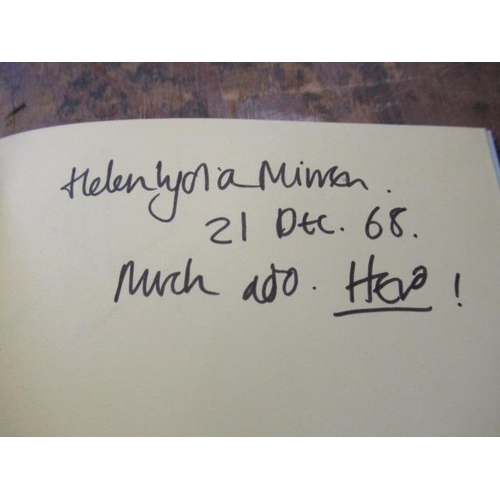 Helen Lydia Mirren.
21 Dec. 68.
Much ado. Hero!